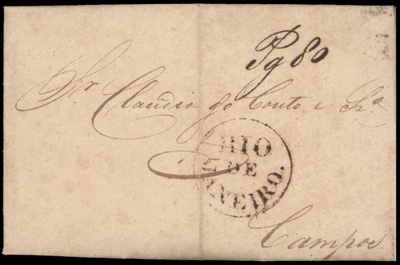 Pg 80
Snr. Claudio do Couto e Sza.
RIO
DE
JANVEIRO.
Campos